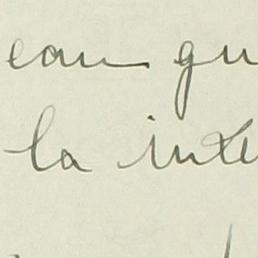 ean gu
la inte